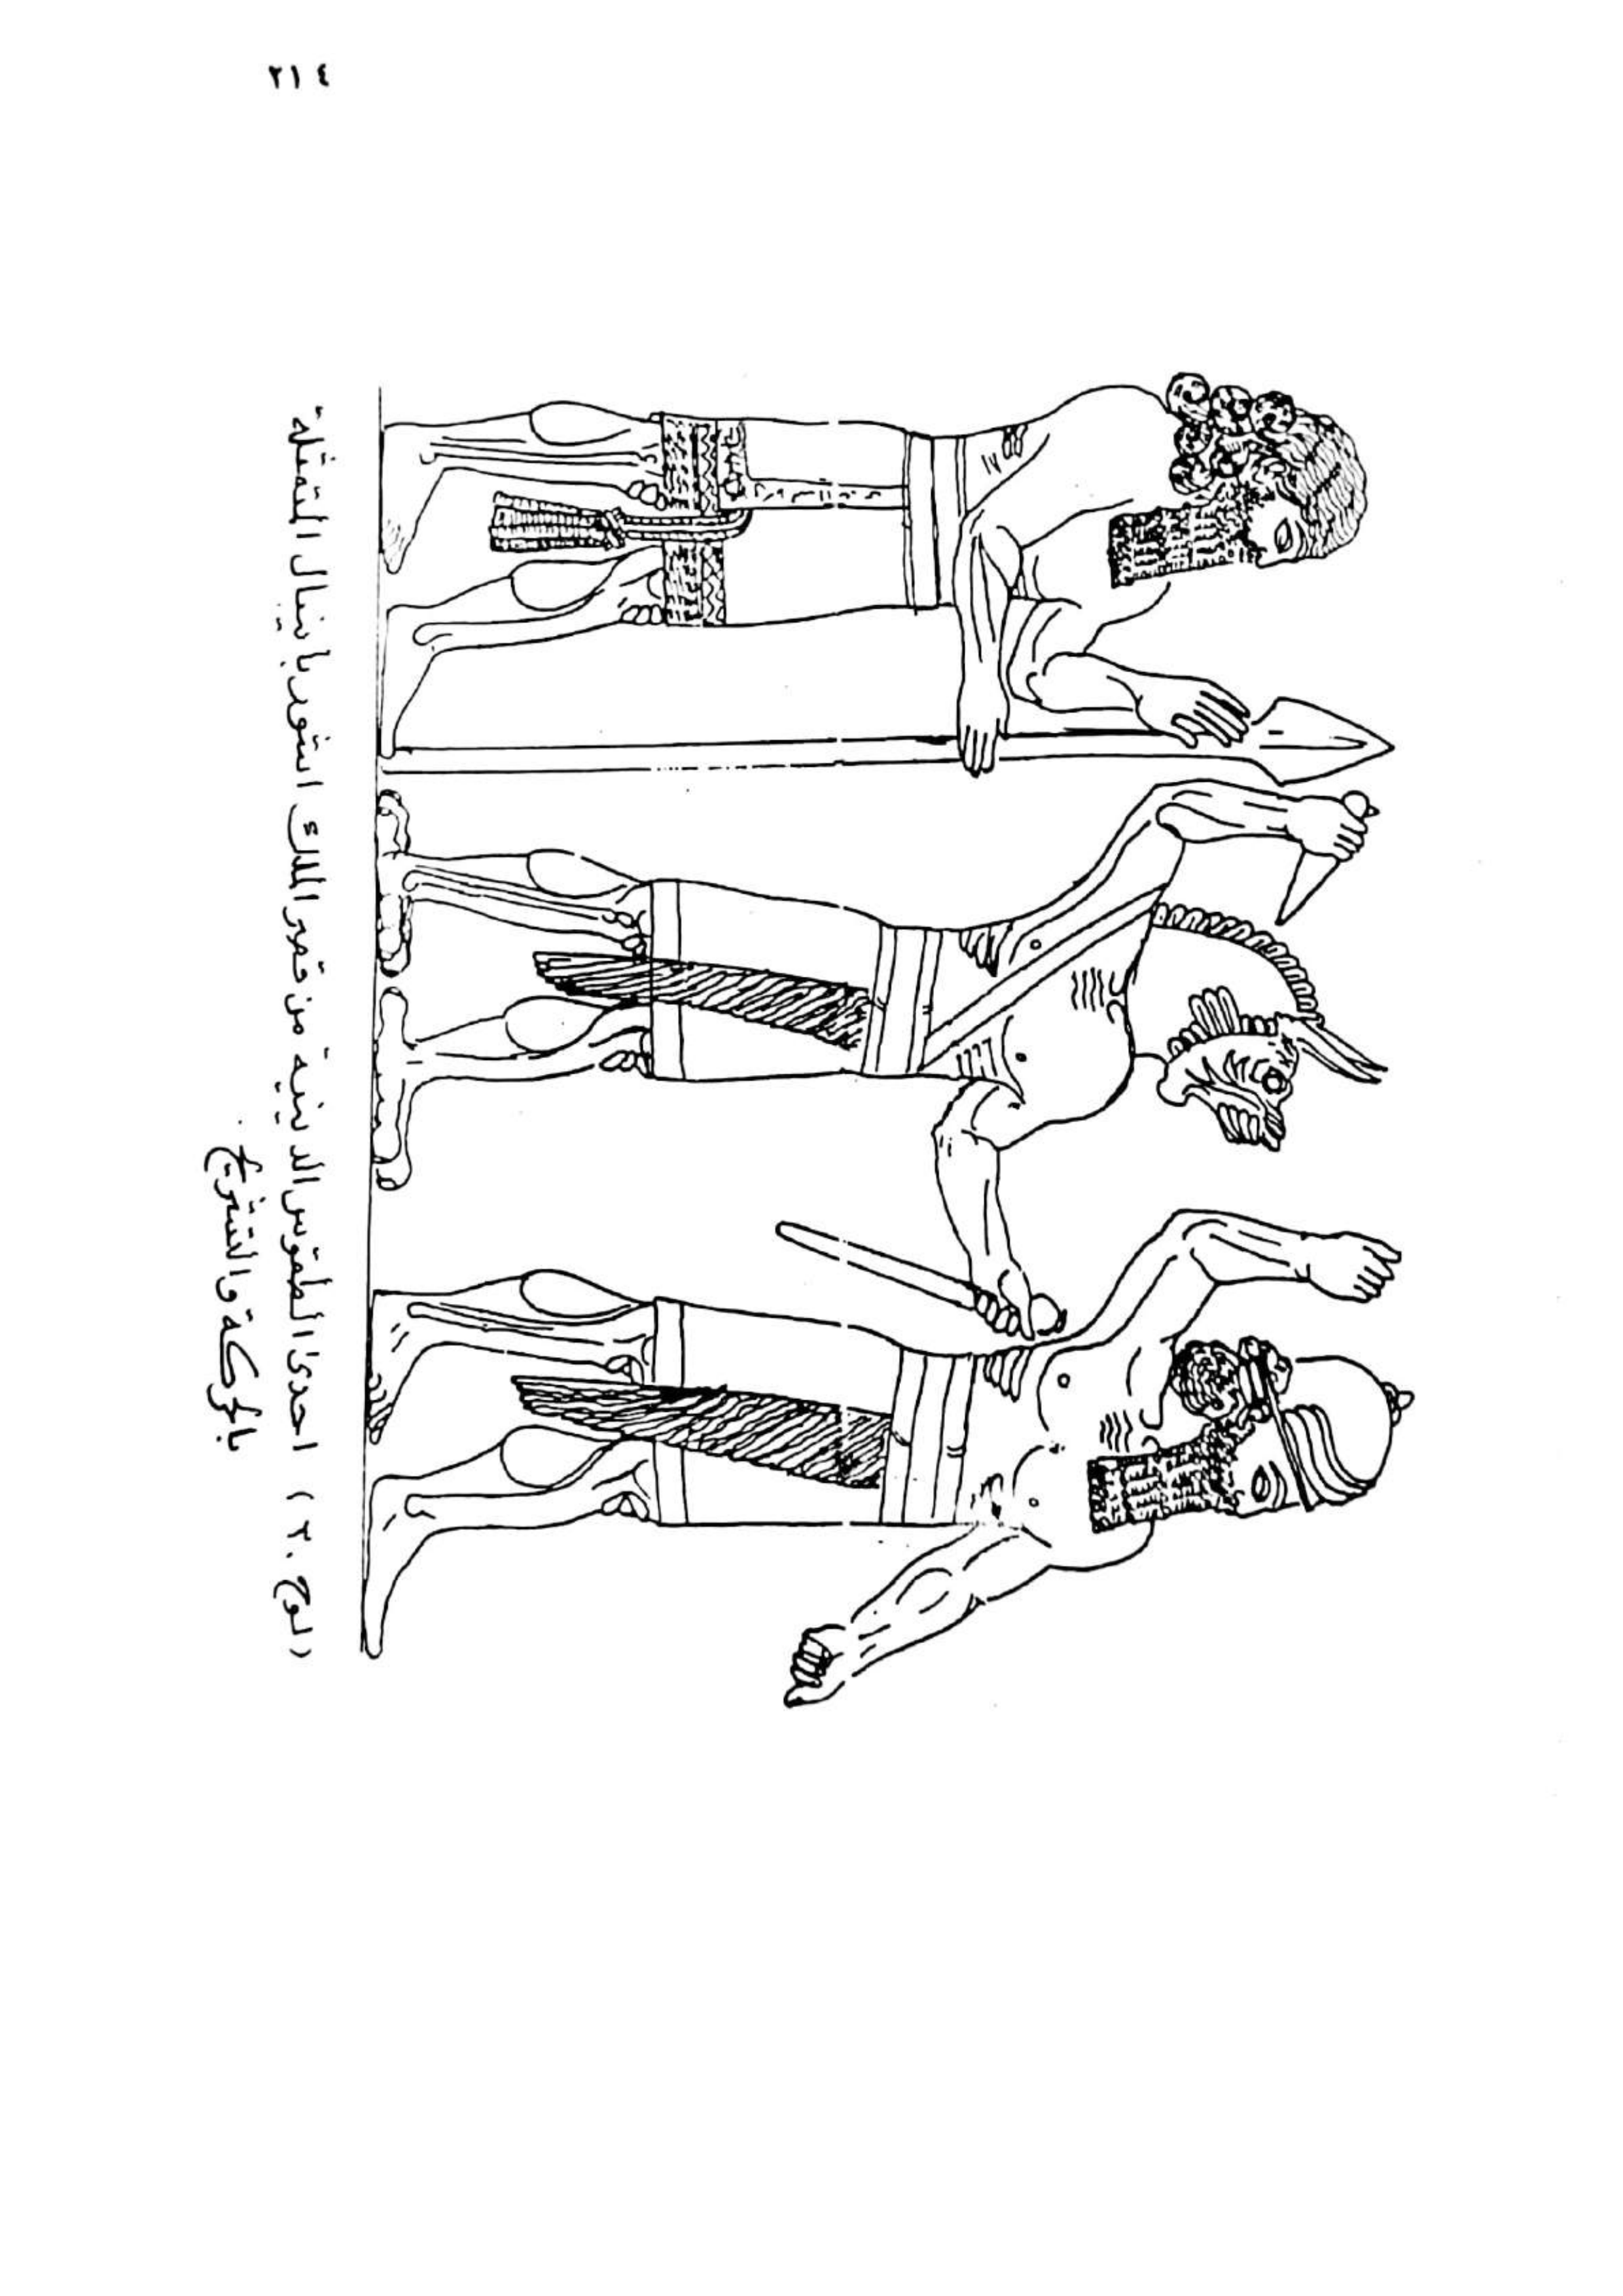 ٢١٤
(لوح ٢٠) احدى الطقوس الدينية من قصر الملك اشور بانيبال المتمثلة
بالحركة والتنويع